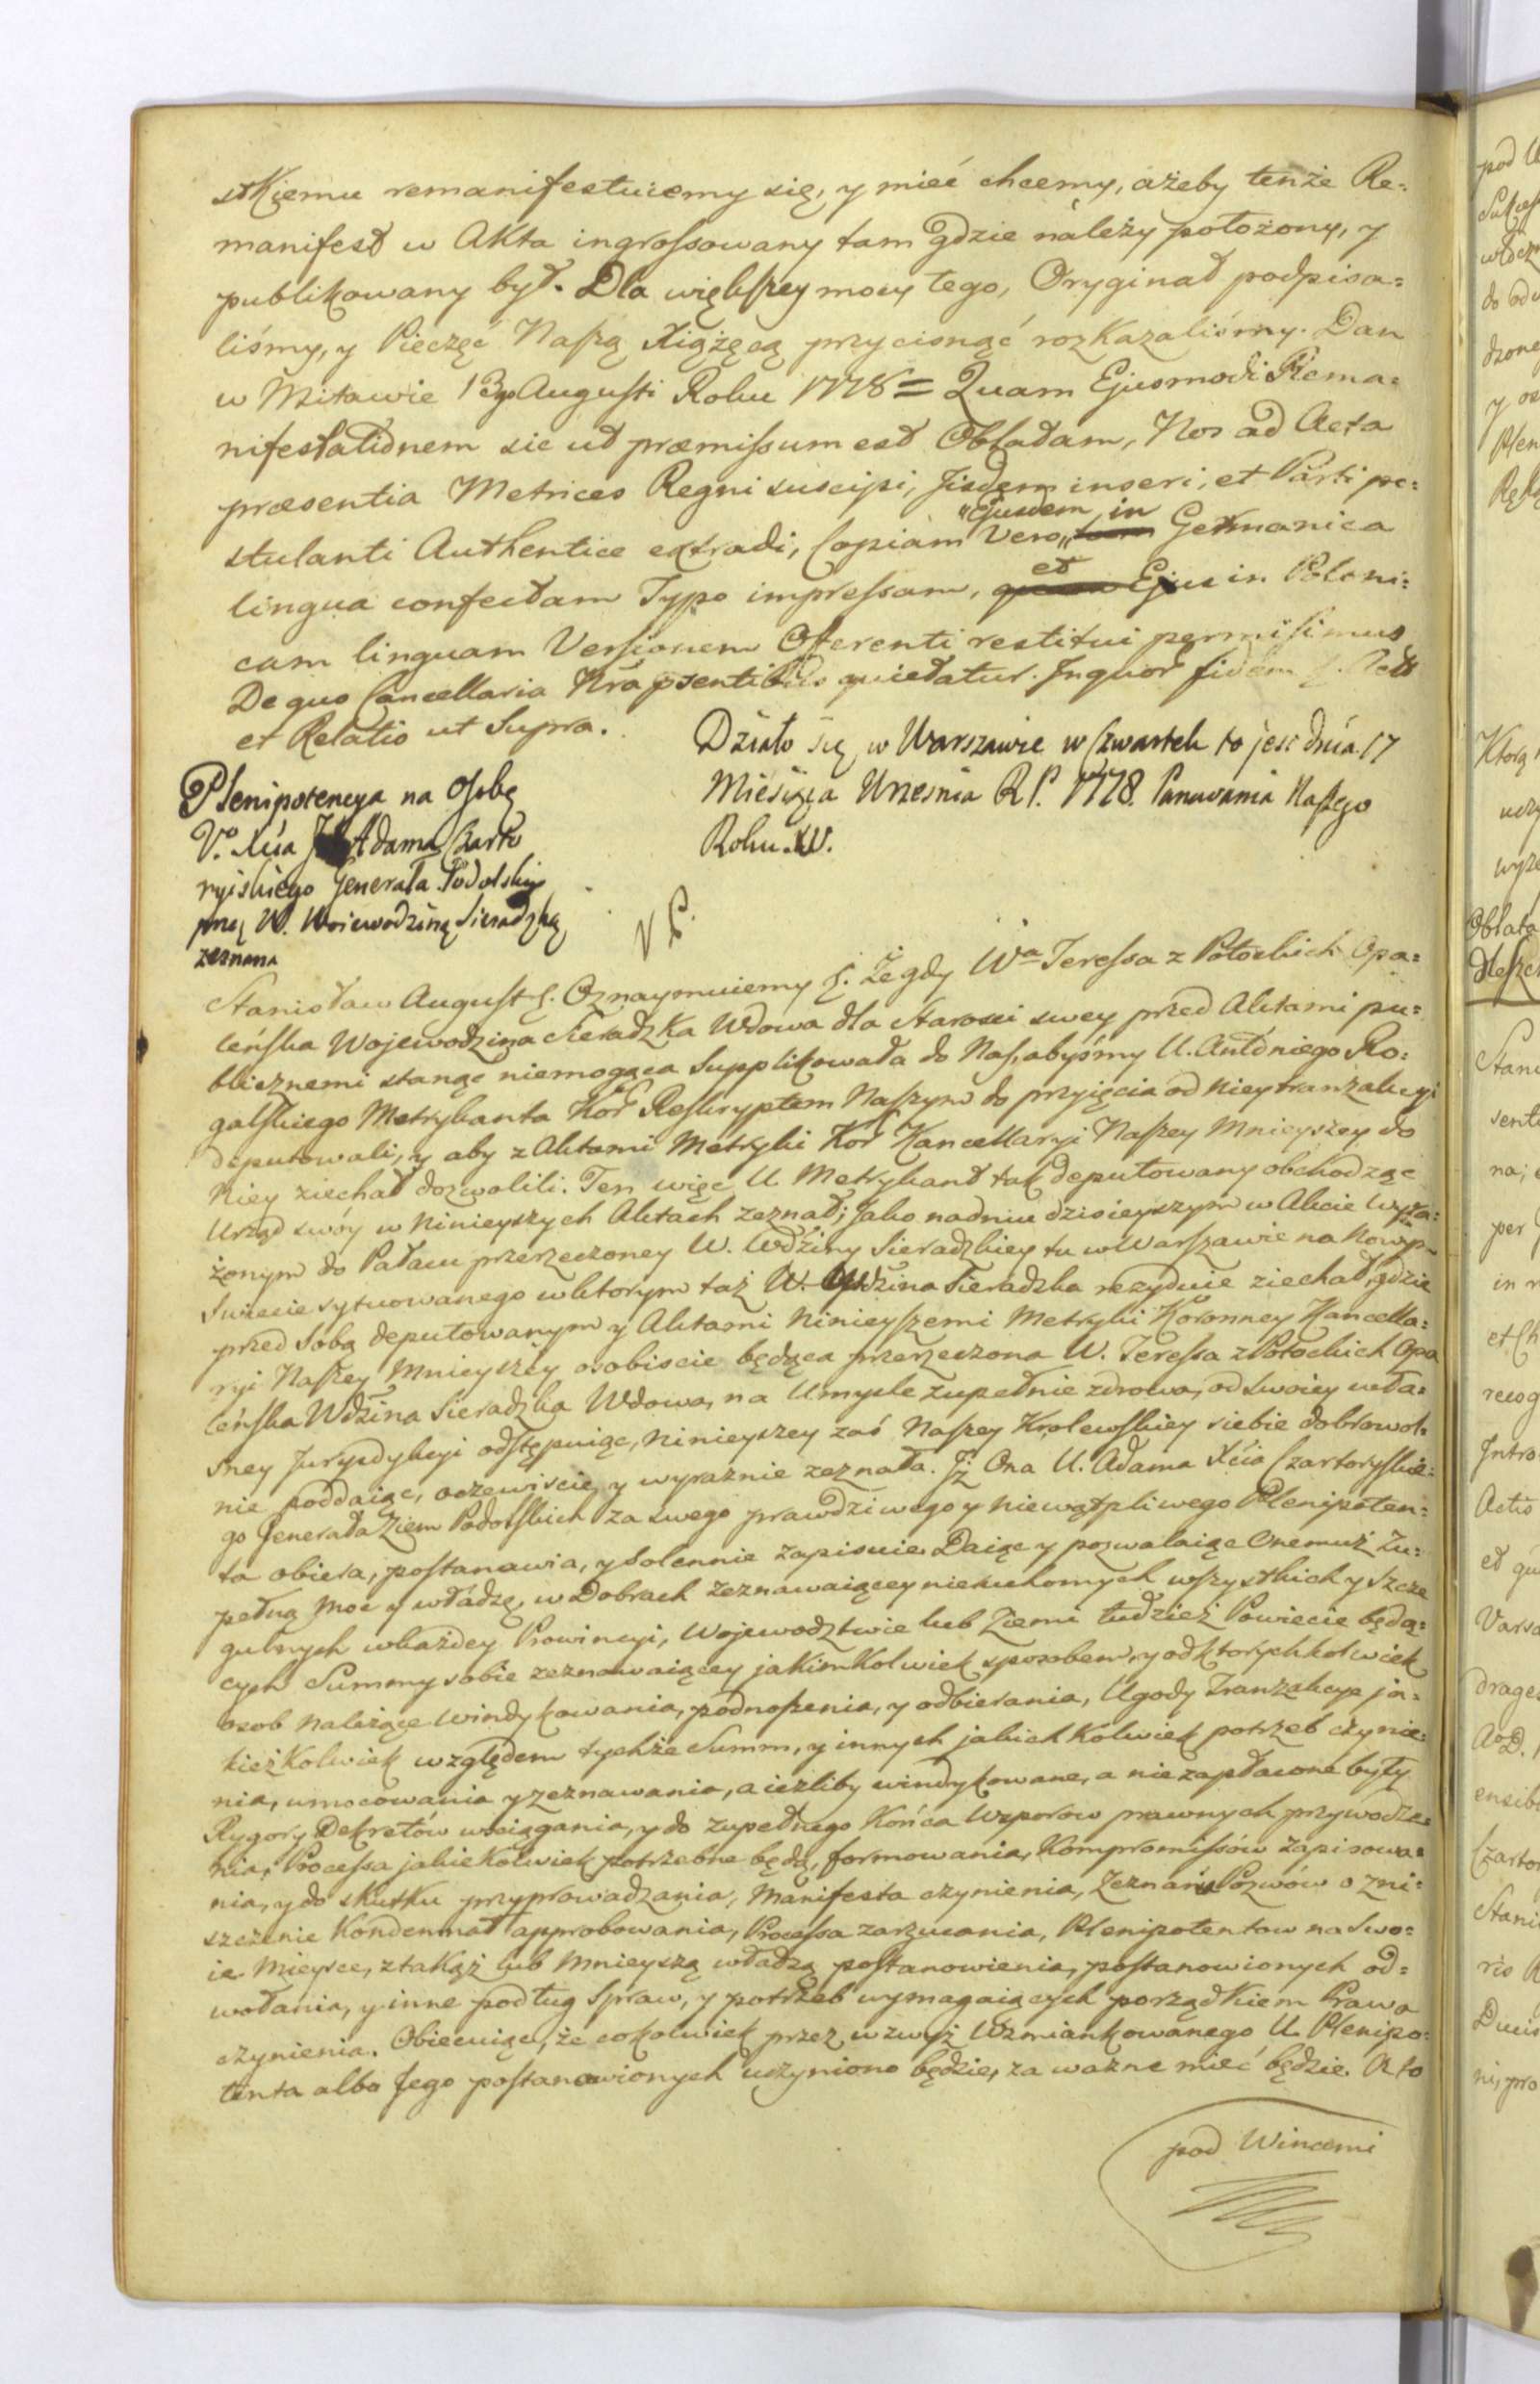 stkiemu remanifestuiemy się, y mieć chcemy, ażeby tenże Re=
manifest w Akta ingrossowany tam gdzie należy położony, y
publikowany był. Dla większey mocy tego, Oryginał podpisa=
liśmy, y Pieczęć Naszą Xiążęcą przycisnąć rozkazaliśmy. Dan
w Mitawie 13 Augusti Roku 1778 = Quam Ejusmodi Rema=
nifestationem sic ut præmissum est Oblatam, Nos ad Acta
præsentia Metrices Regni suscipi, Jisdem inseri, et Parti po=
stulanti Authentice extradi, Copiam Vero „Ejusdem in Germanica
lingua confectam Typo impressam, et Ejus in Poloni=
cam linguam Versionem Offerenti restitui permisimus
De quo Cancellaria Nra psentibus quietatur. Inquor fidem
et Relatio ut Supra.
Działo się w Warszawie w Czwartek to jest dnia 17
Miesiąca Wrzesnia R.P. 1778. Panowania Naszego
Roku XV.
Plenipotencya na Osobę
V. Xcia Adama Czarto
ryiskiego Generała Podolskiego
przez W. Woiewodzinę Sieradzką
zeznana
Stanisław August &. Oznaymuiemy &. Że gdy Wa Teressa z Potockich Opa=
leńska Wojewodzina Sieradzka Wdowa dla starosci swey przed Aktami pu=
blicznemi stanąć niemogąca Supplikowała do Nas, abyśmy U. Antoniego Ro=
galskiego Metrykanta Kor Reskryptem Naszym do przyięcia od Niey tranzakcyi
deputowali, y aby z Aktami Metryki Kor Kancellaryi Naszey Mnieyszey do
Niey ziechał dozwolili. Ten więc U. Metrykant tak deputowany obchodząc
Urząd swóy w Ninieyszych Aktach zeznał; jako nadniu dzisieyszym w Akcie wyra=
żonym do Pałacu przerzeczoney W. Wdziny Sieradzkiey tu w Warszawie na Nowym
Swiecie sytuowanego w ktorym taż W. Wdzina Sieradzka rezyduie ziechał, gdzie
przed Sobą deputowanym y Aktami Ninieyszemi Metryki Koronney Kancella=
ryi Naszey Mnieyszey osobiscie będąca przerzeczona W. Teressa z Potockich Opa
leńska Wdzina Sieradzka Wdowa, na Umysle zupełnie zdrowa, od Swoiey wła=
sney Jurysdykcyi odstępuiąc, Ninieyszey zaś Naszey Krolewskiey siebie dobrowol=
nie poddaiąc, oczewiscie y wyraznie zeznała. Jż Ona U. Adama Xcia Czartoryskie=
go Generała Ziem Podolskich za swego prawdziwego y niewątpliwego Plenipoten=
ta obiera, postanawia, y Solennie zapisuie. Daiąc y pozwalaiąc Onemuż Zu=
pełną Moc y władzę, w Dobrach Zeznawaiącey niekuchomych wszystkich y szcze
gulnych w każdey Prowincyi, Wojewodztwie lub Ziemi tudzież Powiecie będą=
cych Summy sobie zeznawaiącey jakimkolwiek sposobem, y od ktorychkolwiek
osob Należące windykowania, podnoszenia, y odbierania, Ugody Tranzakcye ja=
kież Kolwiek względem tychże Summ, y innych jakich Kolwiek potrzeb czynie=
nia, umocowania y zeznawania, a ieżliby windykowane, a nie zapłacone były
Rygory Dekretów wciągania, y do zupełnego Końca Wzporow prawnych przywodze=
nia, Processa jakie Kolwiek potrzebne będą, formowania, Kompromissów zapisowa=
nia, y do skutku przyprowadzania, Manifesta czynienia, Zeznań Pozwów o zni=
szczenie Kondemnat approbowania, Processa zarzucania, Plenipotentow na Swo=
ie Mieysce, z takąż lub Mnieyszą władzą postanowienia, postanowionych od=
wołania, y inne podług Spraw, y potrzeb wymagaiących porządkiem Prawa
czynienia. Obiecuiąc, że cokolwiek przez wzwyż Wzmiankowanego U. Plenipo=
tenta albo Jego postanowionych uczyniono będzie, za ważne mieć będzie. A to
pod Winami